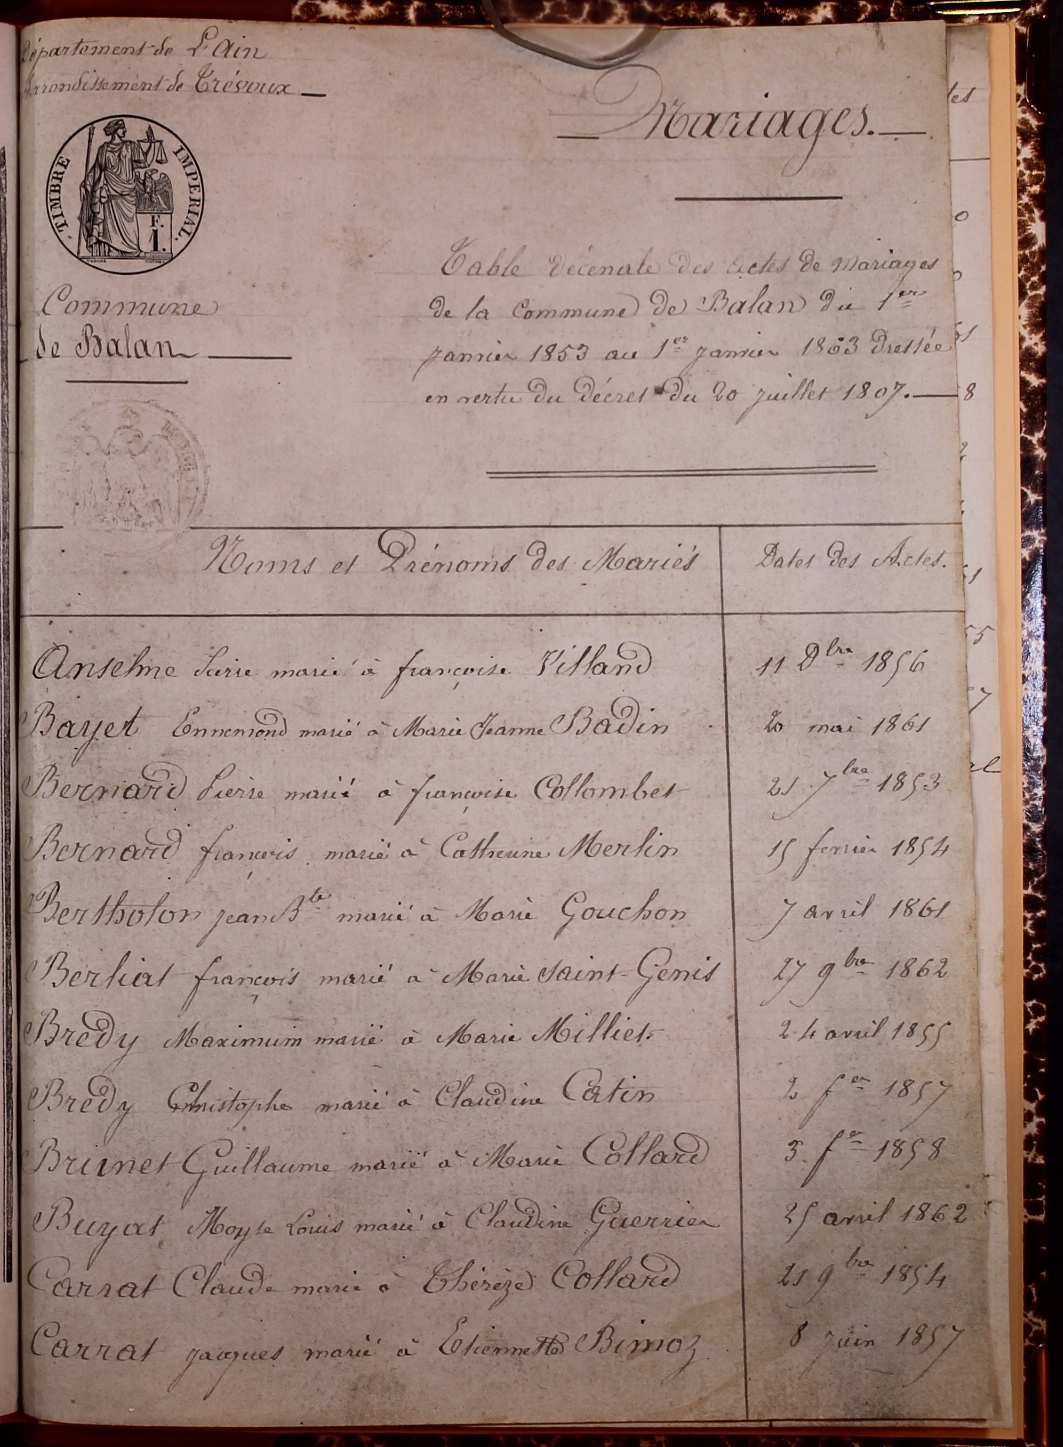 Département de L'Ain
Arrondissement de Trévoux
Mariages.
TIMBRE IMPERIAL.
F.
1.
Commune
de Balan
Table décenale des actes de Mariages
de la Commune de Balan du 1er
janvier 1853 au 1er janvier 1863 dressée
en vertu du décret du 20 juillet 1807.
Noms et Prénoms des Mariés Dates des Actes.
Anselme Pierre marié à françoise Villand 11 Dbre 1856
Bayet Ennemond marié à Marie Jeanne Badin 20 mai 1861
Bernard Pierre marié à françoise Collombet 21 7bre 1853
Bernard françois marié à Catherine Merlin 15 fevrier 1854
Bertholon jean Bte marié à Marie Gouchon 7 avril 1861
Berliat françois marié à Marie Saint-Genis 27 9bre 1862
Bredy Maximim marié à Marie Milliet 24 avril 1855
Bredy Christophe marié à Claudine Catin 2 fer 1857
Brunet Guillaume marié à Marie Collard 3 fer 1858
Buyat Moyse Louis marié à Claudine Guerrier 25 avril 1862
Carrat Claude marié à Thérèze Collard 21 9bre 1854
Carrat jacques marié à Etiennette Bimoz 8 juin 1857